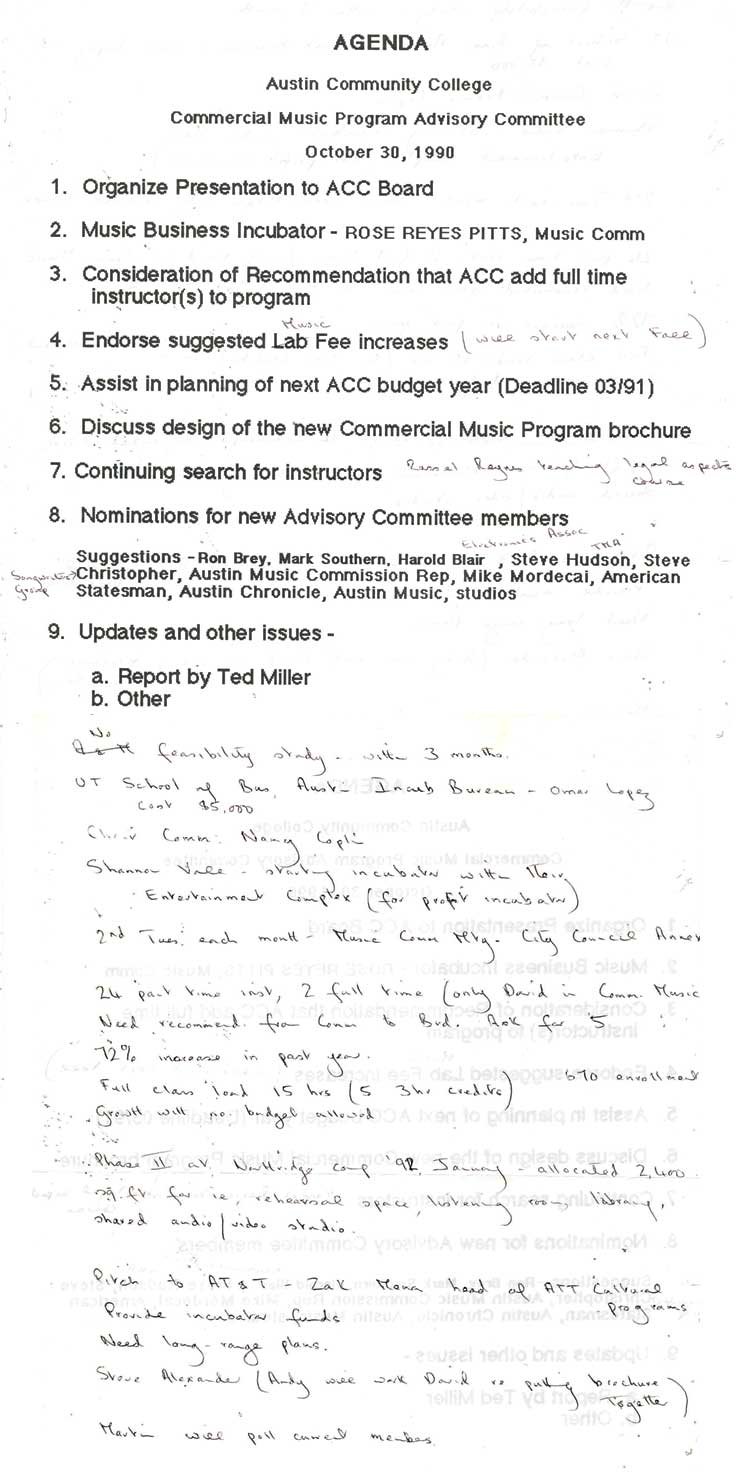 AGENDA
Austin Community College
Commercial Music Program Advisory Committee
October 30, 1990
1. Organize Presentation to ACC Board
2. Music Business Incubator - ROSE REYES PITTS, Music Comm
3. Consideration of Recommendation that ACC add full time
instructor(s) to program
Music
4. Endorse suggested Lab Fee increases (will start next Fall)
5. Assist in planning of next ACC budget year (Deadline 03/91)
6. Discuss design of the new Commercial Music Program brochure
7. Continuing search for instructors Reyes teaching legal aspects
course
8. Nominations for new Advisory Committee members
Electronics Assoc
TMA
Suggestions - Ron Brey, Mark Southern, Harold Blair , Steve Hudson, Steve
Songwriters Christopher, Austin Music Commission Rep, Mike Mordecai, American
Group Statesman, Austin Chronicle, Austin Music, studios
9. Updates and other issues -
a. Report by Ted Miller
b. Other
No
feasibility study - within 3 months.
UT School of Bus, Austin Incub Bureau - Omar Lopez
Cost $5,000
Comm: Nancy Coplin
Shannon Vale - starting incubator with their
Entertainment Complex (for profit incubator)
2nd Tues. each month - Music Comm Mtg. City Council Annex
24 part time inst, 2 full time (only David in Comm. Music
Need recommend. from Comm to Brd. Ask for 5
72% increase in past year.
Full class load 15 hrs (5 3hr credits) 670 enrollment
Growth will no budget allowed
Phase II at Northridge comp '92, January - allocated 2,400
sq. ft for ie, rehearsal space, listening room, library,
shared audio/video studio.
Pitch to AT&T - Zak head of ATT Cultural
Programs
Provide incubator funds
Need long-range plans.
Steve Alexander (Andy will work David re putting brochure
together)
will poll current members.